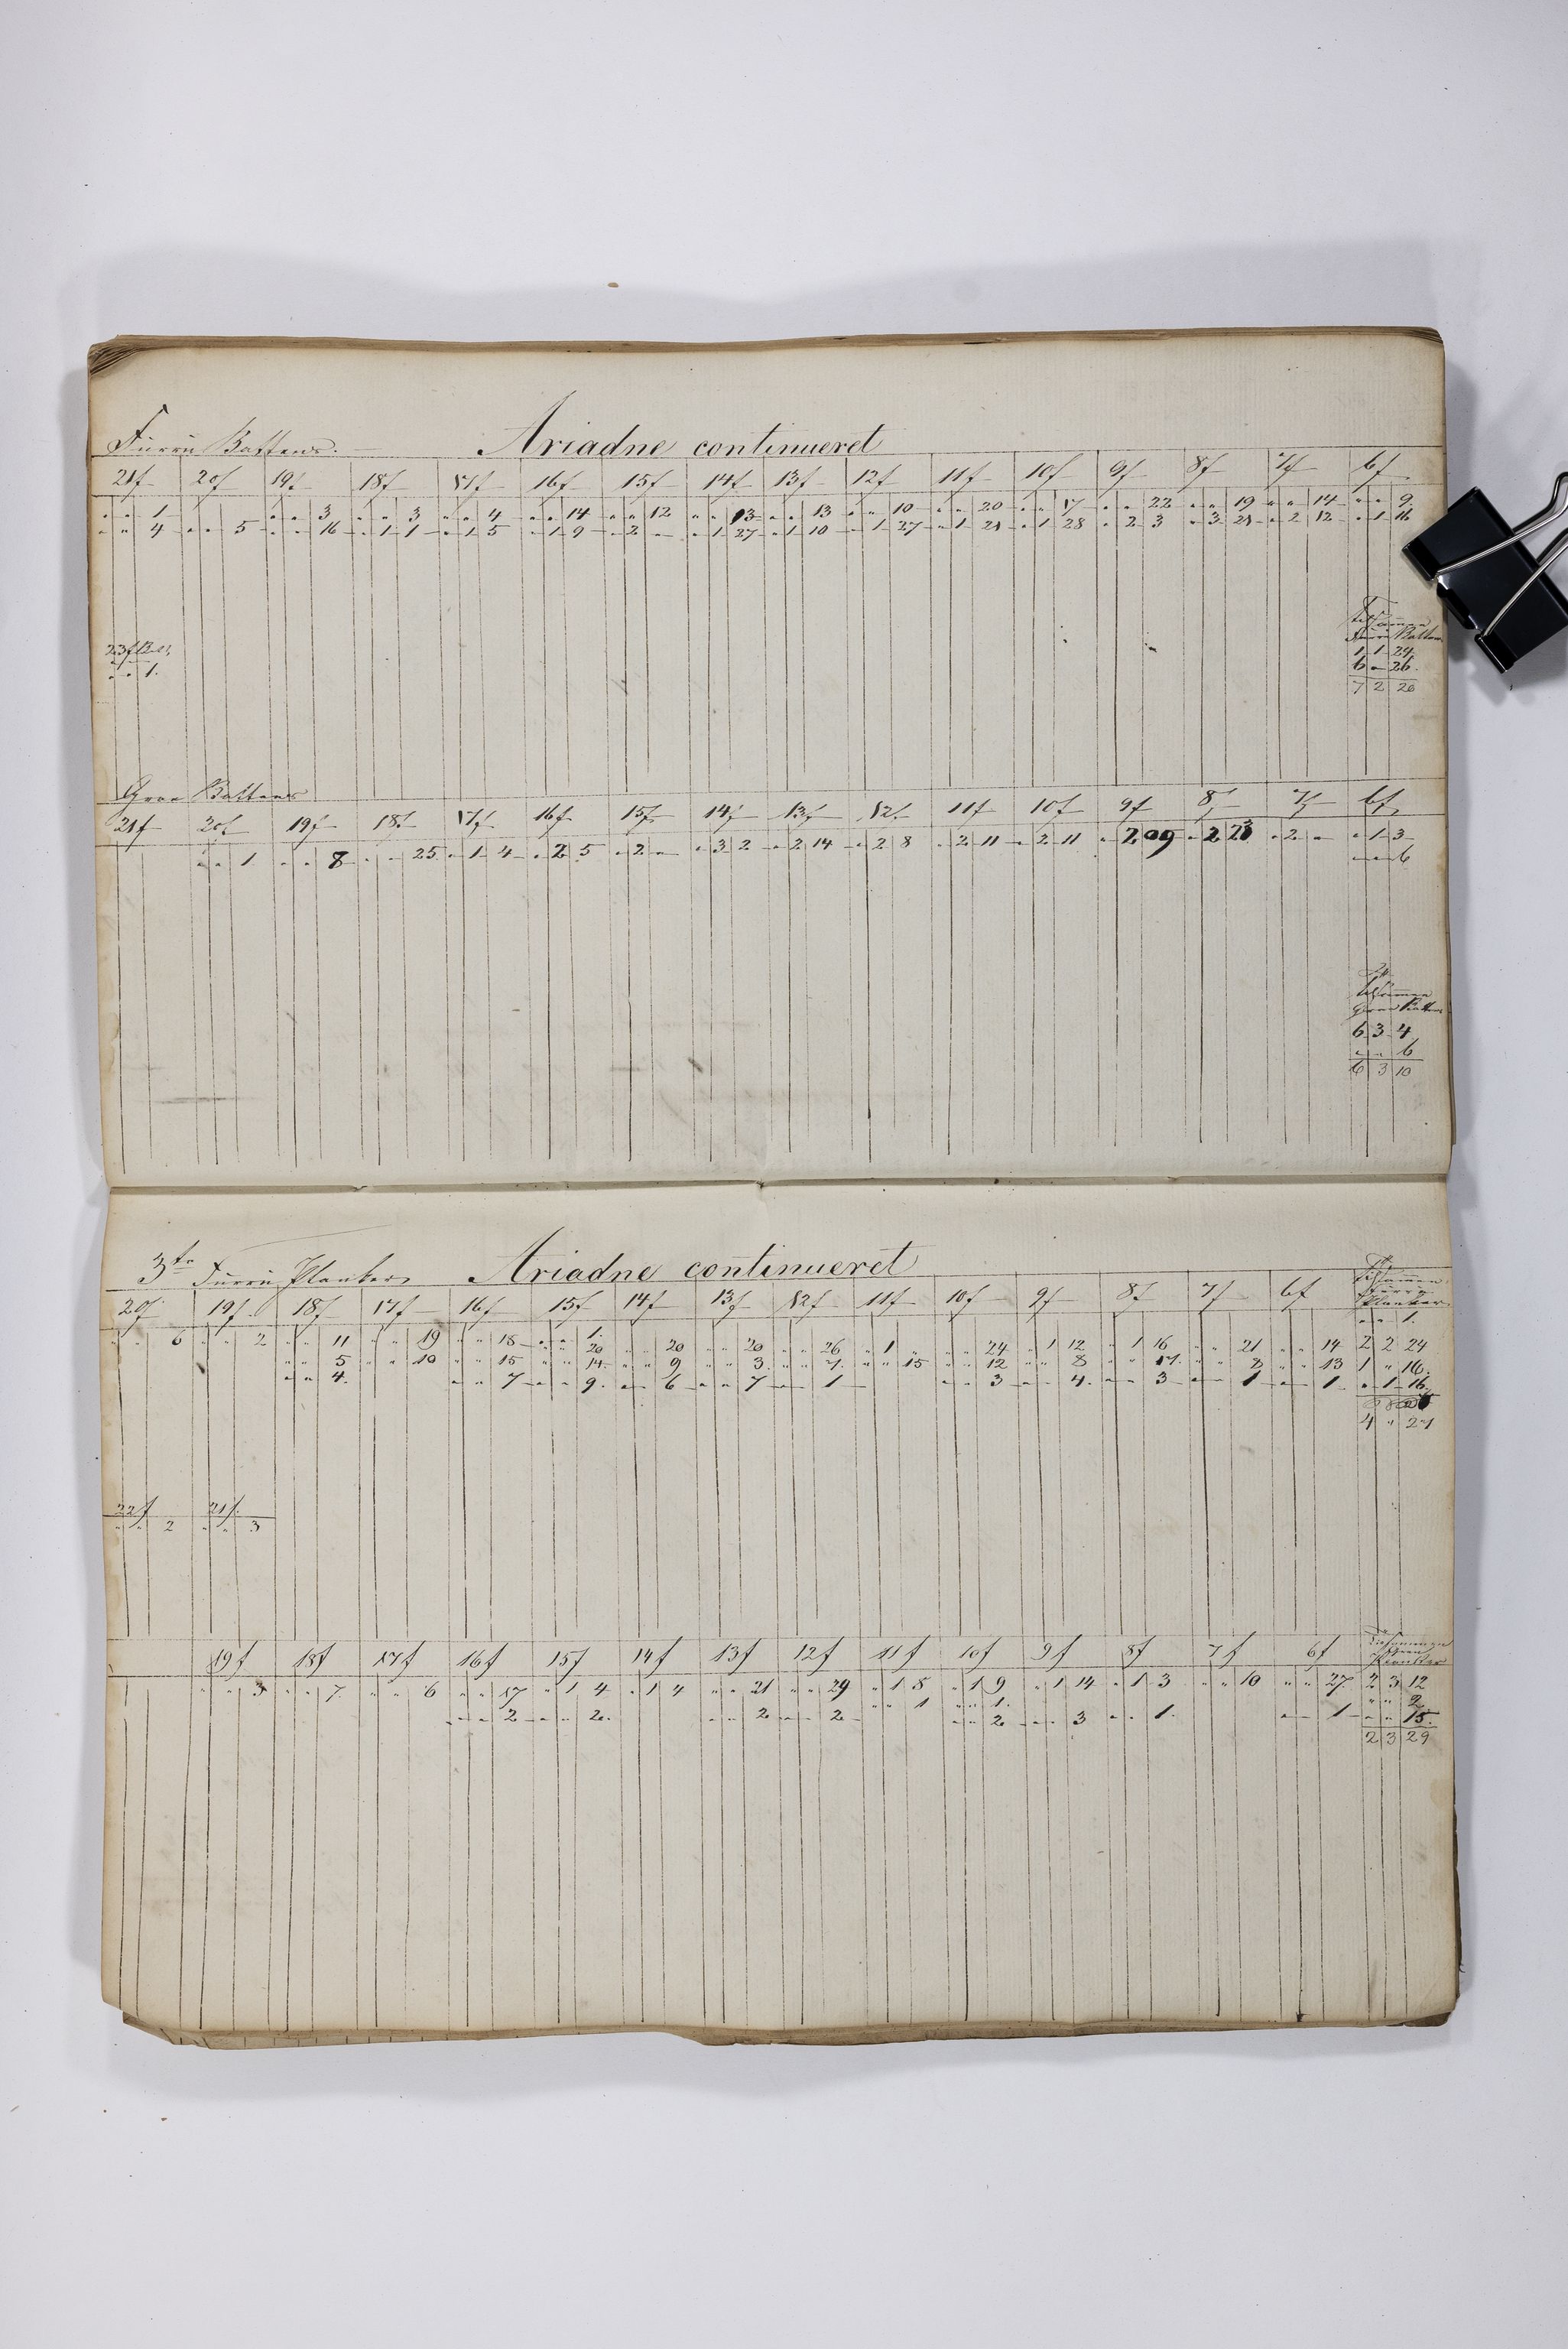 Furru Battens. Ariadne continueret
21f 20f 19f 18f 17f 16f 15f 14f 13f 12f 11f 10f 9f 8f 7f 6f
" " 1 " " 3 " " 3 " " 4 " " 14 " " 12 " " 13 " " 13 " " 10 " " 20 " " 17 " " 22 " " 19 " " 14 " " 9
" " 4 " " 5 " " 16 " 1 1 " 1 5 " 1 9 " 2 " " 1 27 " 1 10 " 1 27 " 1 21 " 1 28 " 2 3 " 3 21 " 2 12 " 1 16
Tilsammen
Furru Battens
23f
" " 1.
1 1 24
6 " 26
7 2 20
Gran Battens
21f 20f 19f 18f 17f 16f 15f 14f 13f 12f 11f 10f 9f 8f 7f 6f
" " 1 " " 8 " " 25 " 1 4 " 2 5 " 2 " " 3 2 " 2 14 " 2 8 " 2 11 " 2 11 " 2 09 " 2 23 " 2 " " 1 3
" " 6
Tilsammen
Gran Battens
6 3 4
" " 6
6 3 10
3te Furru Planker Ariadne continueret
Tilsammen
Furru
Planker
20f 19f 18f 17f 16f 15f 14f 13f 12f 11f 10f 9f 8f 7f 6f
" " 1. " " 1.
" " 6 " " 2 " " 11 " " 19 " " 18 " " 20 " " 20 " " 20 " " 26 " 1 " " " 24 " 1 12 " 1 16 " " 21 " " 14 2 2 24
" " 5 " " 10 " " 15 " " 14 " " 9 " " 3 " " 7 " " 15 " " 12 " " 8 " " 17 " " 8 " " 13 1 " 16
" " 4 " " 7 " " 9 " " 6 " " 7 " " 1 " " 3 " " 4 " " 3 " " 1 " " 1 " 1 16
4 " 27
22f 21f
" " 2 " " 3
Tilsammen
Gran
Planker
19f 18f 17f 16f 15f 14f 13f 12f 11f 10f 9f 8f 7f 6f
" " 3 " " 7 " " 6 " " 17 " 1 4 " 1 4 " " 21 " " 29 " 1 5 " 1 9 " 1 14 " 1 3 " " 10 " " 27 2 3 12
" " 1 " " 1 " " 2
" " 2 " " 2 " " 2 " " 2 " " 2 " " 3 " " 1 " " 1 " " 15
2 3 29